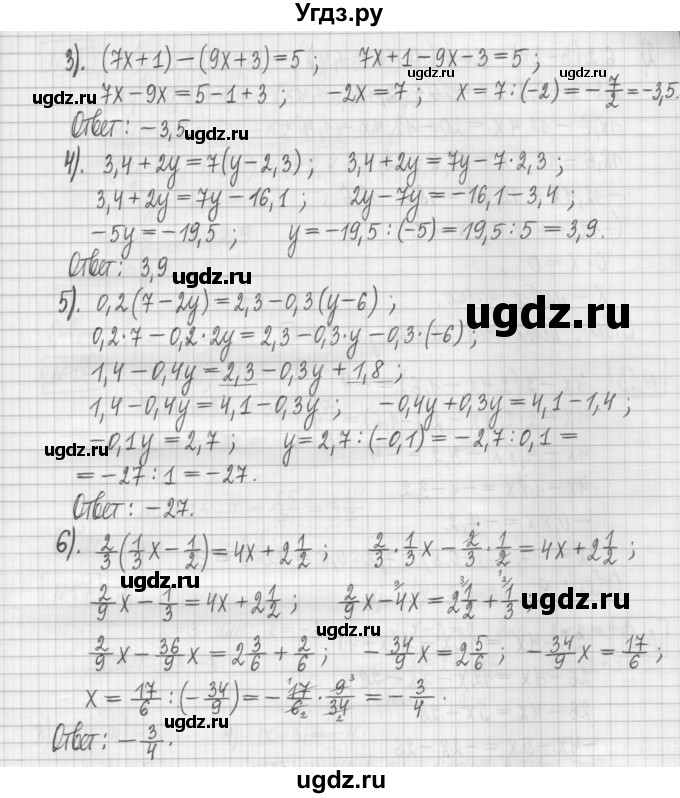 Угдз.ру
3). (7x+1)-(9x+3)=5 ; 7x+1-9x-3=5 ;
7x-9x=5-1+3 ; -2x=7 ; x=7:(-2)=-7/2=-3,5.
Ответ: -3,5
4). 3,4+2y=7(y-2,3) ; 3,4+2y=7y-7·2,3 ;
3,4+2y=7y-16,1 ; 2y-7y=-16,1-3,4 ;
-5y=-19,5 ; y=-19,5:(-5)=19,5:5=3,9.
Ответ: 3,9
5). 0,2(7-2y)=2,3-0,3(y-6) ;
0,2·7-0,2·2y=2,3-0,3·y-0,3·(-6) ;
1,4-0,4y=2,3-0,3y+1,8 ;
1,4-0,4y=4,1-0,3y ; -0,4y+0,3y=4,1-1,4 ;
-0,1y=2,7 ; y=2,7:(-0,1)=-2,7:0,1=
=-27:1=-27.
Ответ: -27.
6). 2/3(1/3x-1/2)=4x+2 1/2 ; 2/3·1/3x-2/3·1/2=4x+2 1/2 ;
2/9x-1/3=4x+2 1/2 ; 2/9x-4x=2 1/2+1/3 ;
2/9x-36/9x=2 3/6+2/6 ; -34/9x=2 5/6 ; -34/9x=17/6 ;
x=17/6:(-34/9)=-17/6·9/34=-3/4.
Ответ: -3/4.
ugdz.ru
ugdz.ru
ugdz.ru
ugdz.ru
ugdz.ru
ugdz.ru
ugdz.ru
ugdz.ru
ugdz.ru
ugdz.ru
ugdz.ru
ugdz.ru
ugdz.ru
ugdz.ru